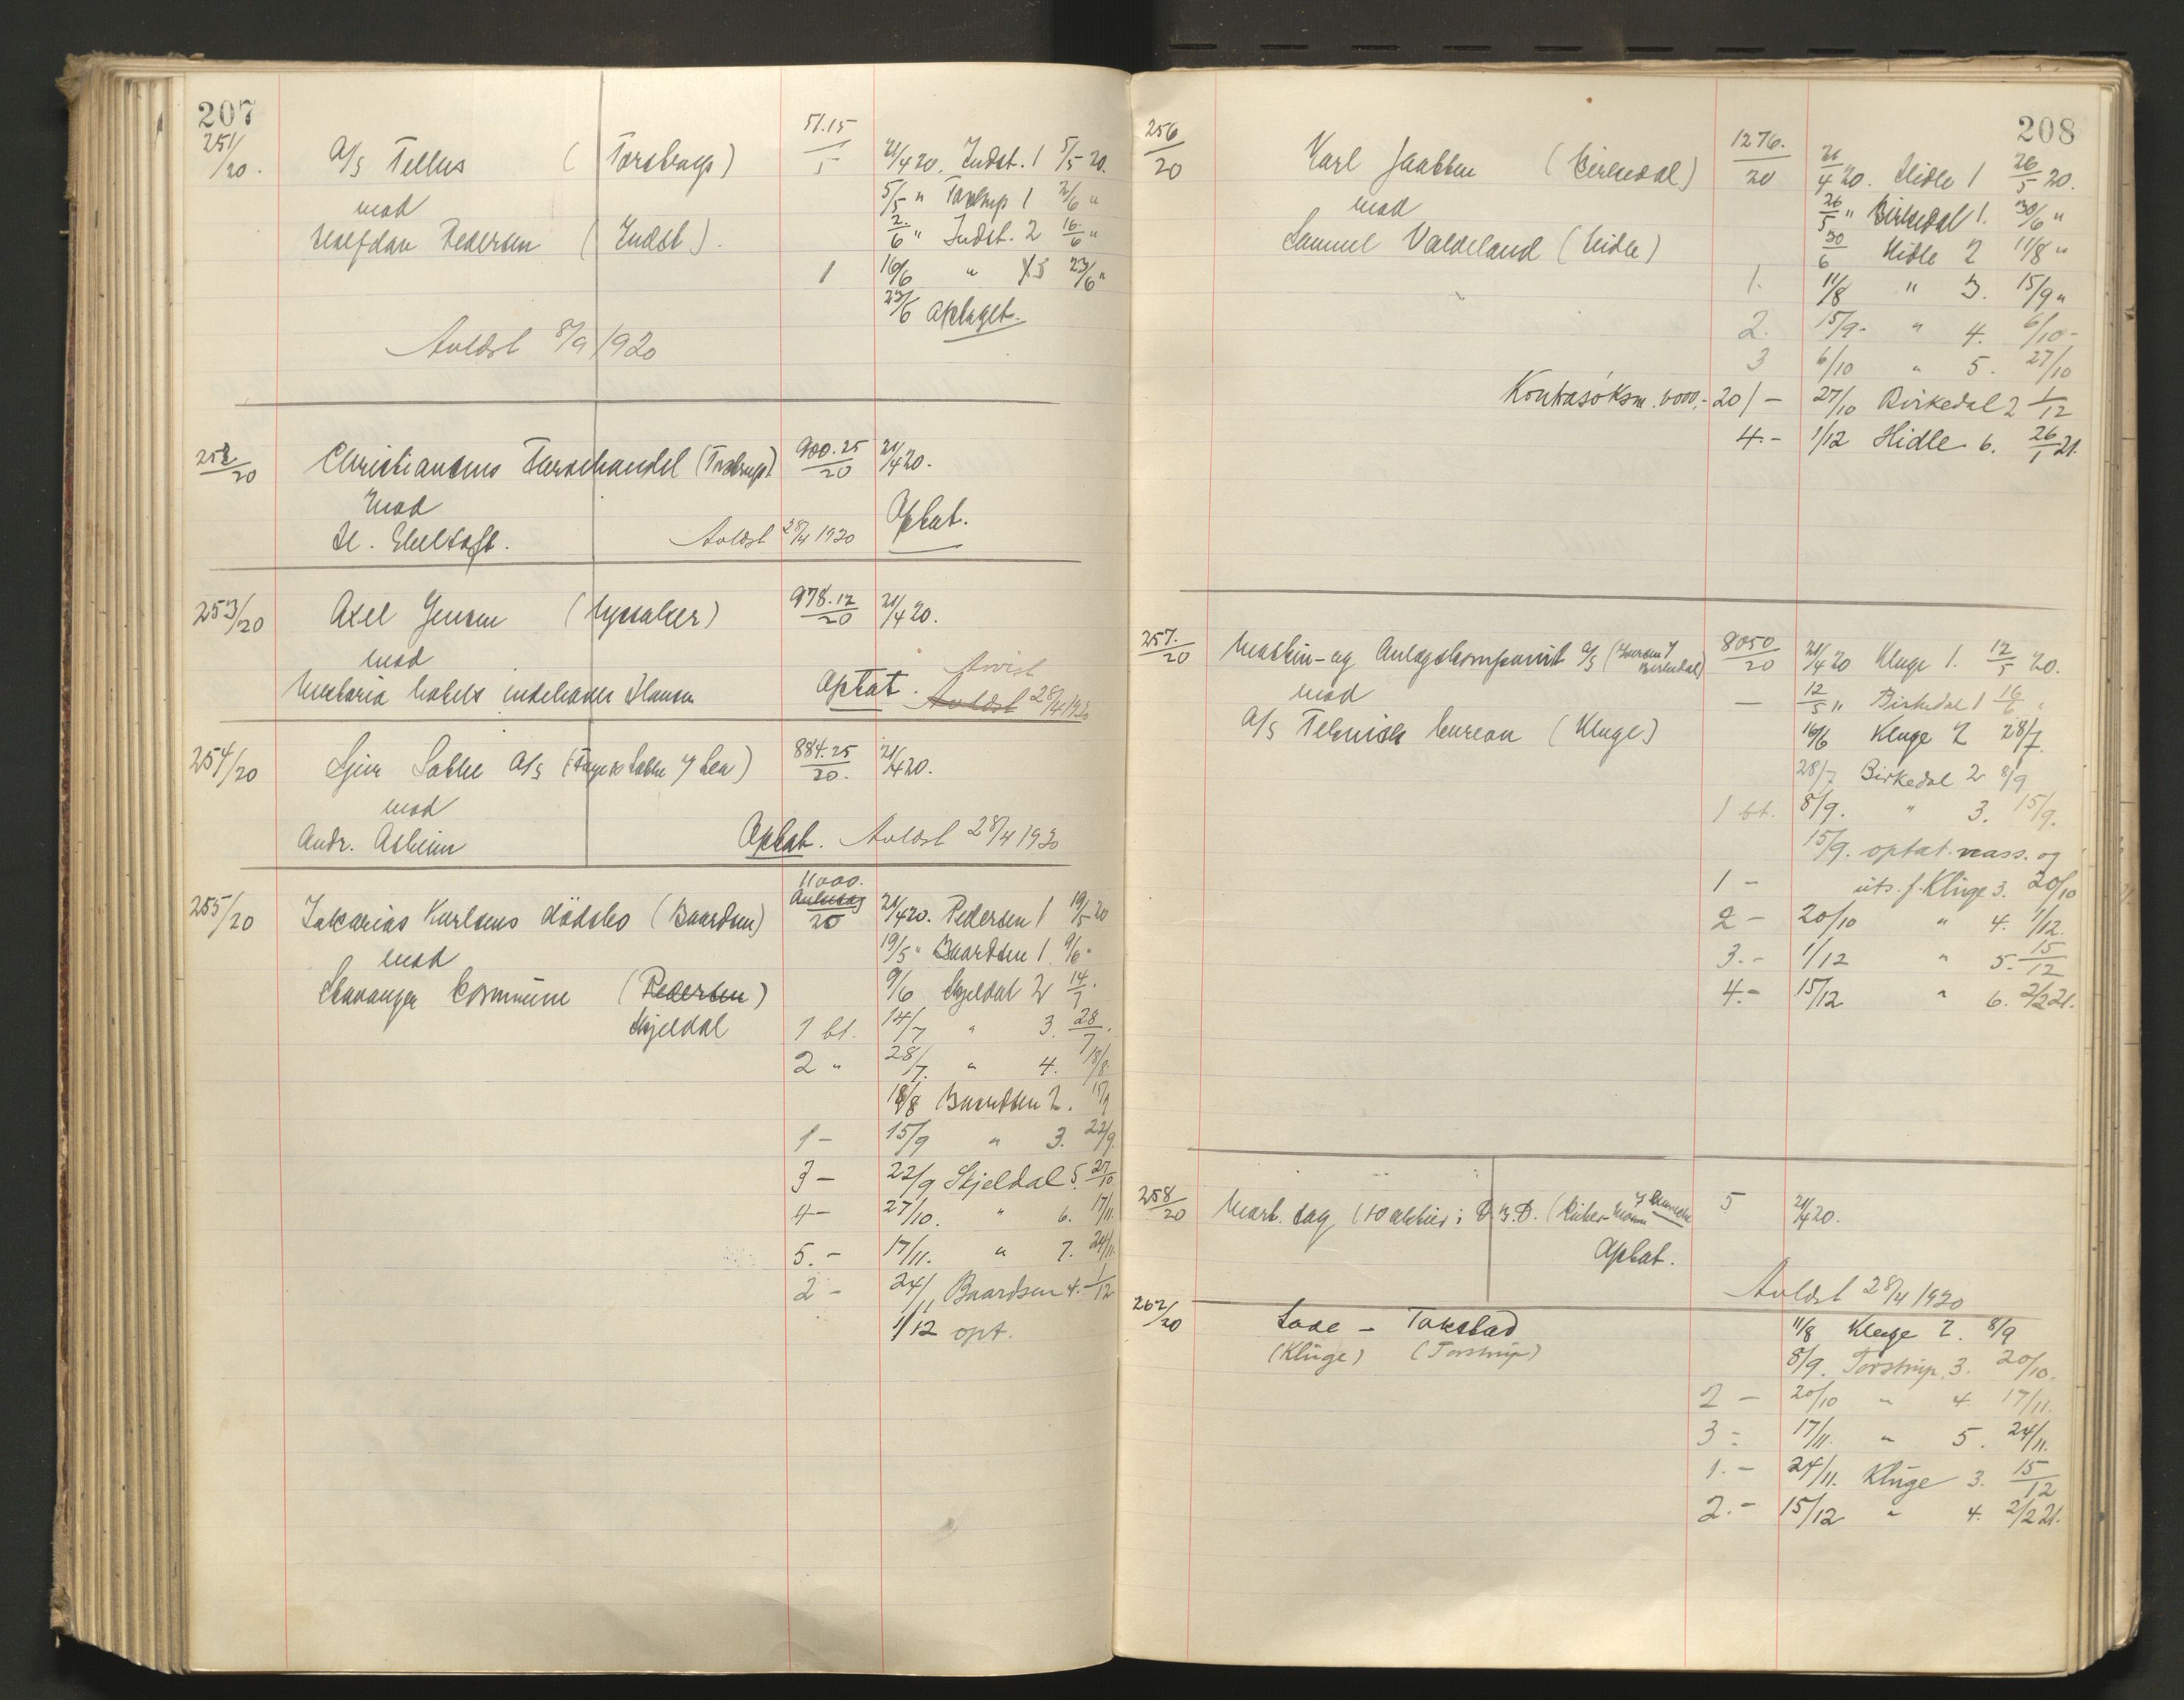 207
251/20. A/S Tellus (Torstrup) 51.15/5 21/4 20. Indst. 1 5/5 20.
mod 5/5 " Torstrup 1 2/6 "
Halfdan Pedersen (Indst). 2/6 " Indst. 2 16/6 "
1 16/6 " 3 23/6 "
23/6 Optaget.
Avlæst 8/9 1920
252/20 Christiansens Farvehandel (Torstrup). 900.25/20 21/4 20.
mod Optat.
H. Ebeltoft. Avlæst 28/4 1920
253/20 Axel Jensen (Lyssaker) 978.12/20 21/4 20.
mod Avvist
Viktoria hotels indehaver Hansen Optat. Avlæst 28/4 1920
254/20 Sjur Sabbe A/S 884.25/20. 21/4 20.
mod
Andr. Asheim Optat. Avlæst 28/4 1920
11000.
255/20 Zakarias Karlsens dödsbo (Baardsen) 20 21/4 20. Pedersen 1 19/5 20
mod 19/5 " Baardsen 1. 9/6 "
Stavanger Commune (Pedersen) 9/6 Skjeldal 2 14/7.
Skjeldal 1 bt. 14/7 " 3. 28/7.
2 " 28/7. " 4. 18/8.
18/8 Baardsen 2. 15/9
1 - 15/9 " 3. 22/9.
3 - 22/9 Skjeldal 5. 27/10
4 - 27/10. " 6. 17/11.
5. - 17/11. " 7. 24/11.
2 - 24/11 Baardsen 4. 1/12
1/12 opt.
208
256/20 Karl Jaabæk (Birkedal) 1276./20 21/4 20. Hidle 1 26/5 20.
mod 26/5 " Birkedal 1. 30/6 "
Samuel Valdeland (Hidle) 30/6 Hidle 2 11/8 "
1. 11/8 " 3. 15/9 "
2. 15/9 - " 4. 6/10 -
3 6/10 " 5. 27/10
Kontrasöksm. 20/- 27/10 Birkedal 2 1/12
4. - 1/12 Hidle 6. 26/1 21.
257./20 Maskin- og Anlægskompaniet A/S 8050/20 21/4 20 Kluge 1. 12/5 20.
mod - 12/5 " Birkedal 1 16/6 "
A/S Teknisk bureau (Kluge) 16/6 Kluge 2 28/7.
28/7 Birkedal 2 8/9
1 bt. 8/9. " 3. 15/9.
15/9. optat. og
1 - uts. f. Kluge 3. 20/10
2 - 20/10 " 4. 1/12.
3. - 1/12 " 5. 15/12
4. - 15/12 " 6. 2/2 21.
258/20 Mort. sag (10 aktier i 5 21/4 20.
Optat.
Avlæst 28/4 1920
262/20 Laae - Takstad 11/8 Kluge 2. 8/9
(Kluge) (Torstrup) 8/9. Torstrup 3. 20/10.
2 - 20/10 " 4. 17/11.
3 - 17/11. " 5. 24/11.
1. - 24/11. Kluge 3. 15/12
2. - 15/12 " 4. 2/2 21.